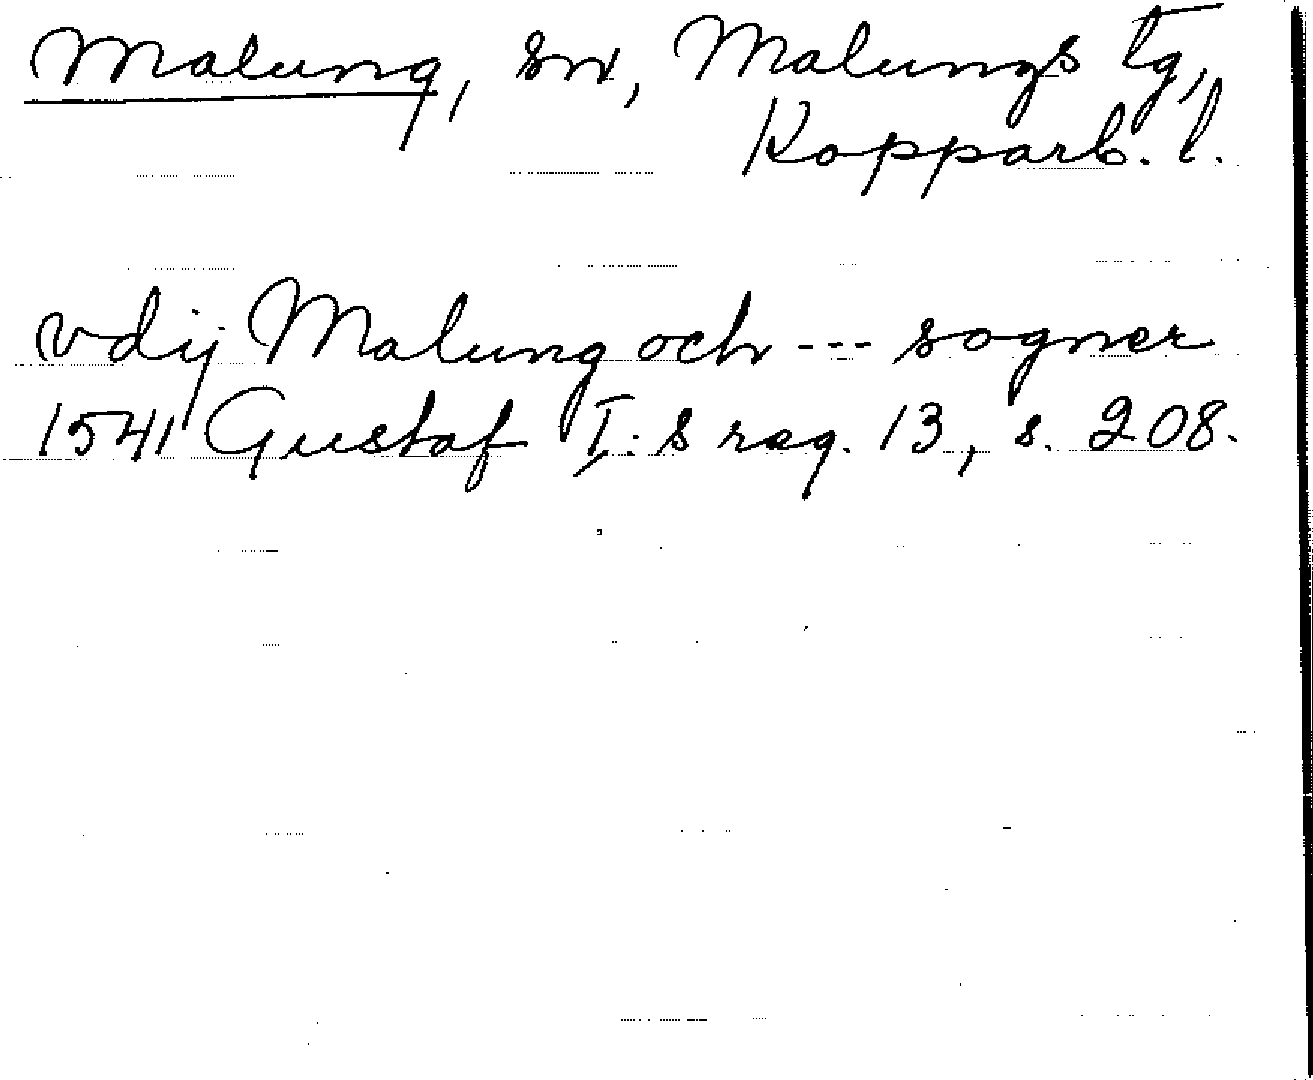 Malung, sn, Malungs tg,
Kopparb. l.
vdij Malung och --- sogner
1541 Gustaf I:s reg. 13, s. 208.